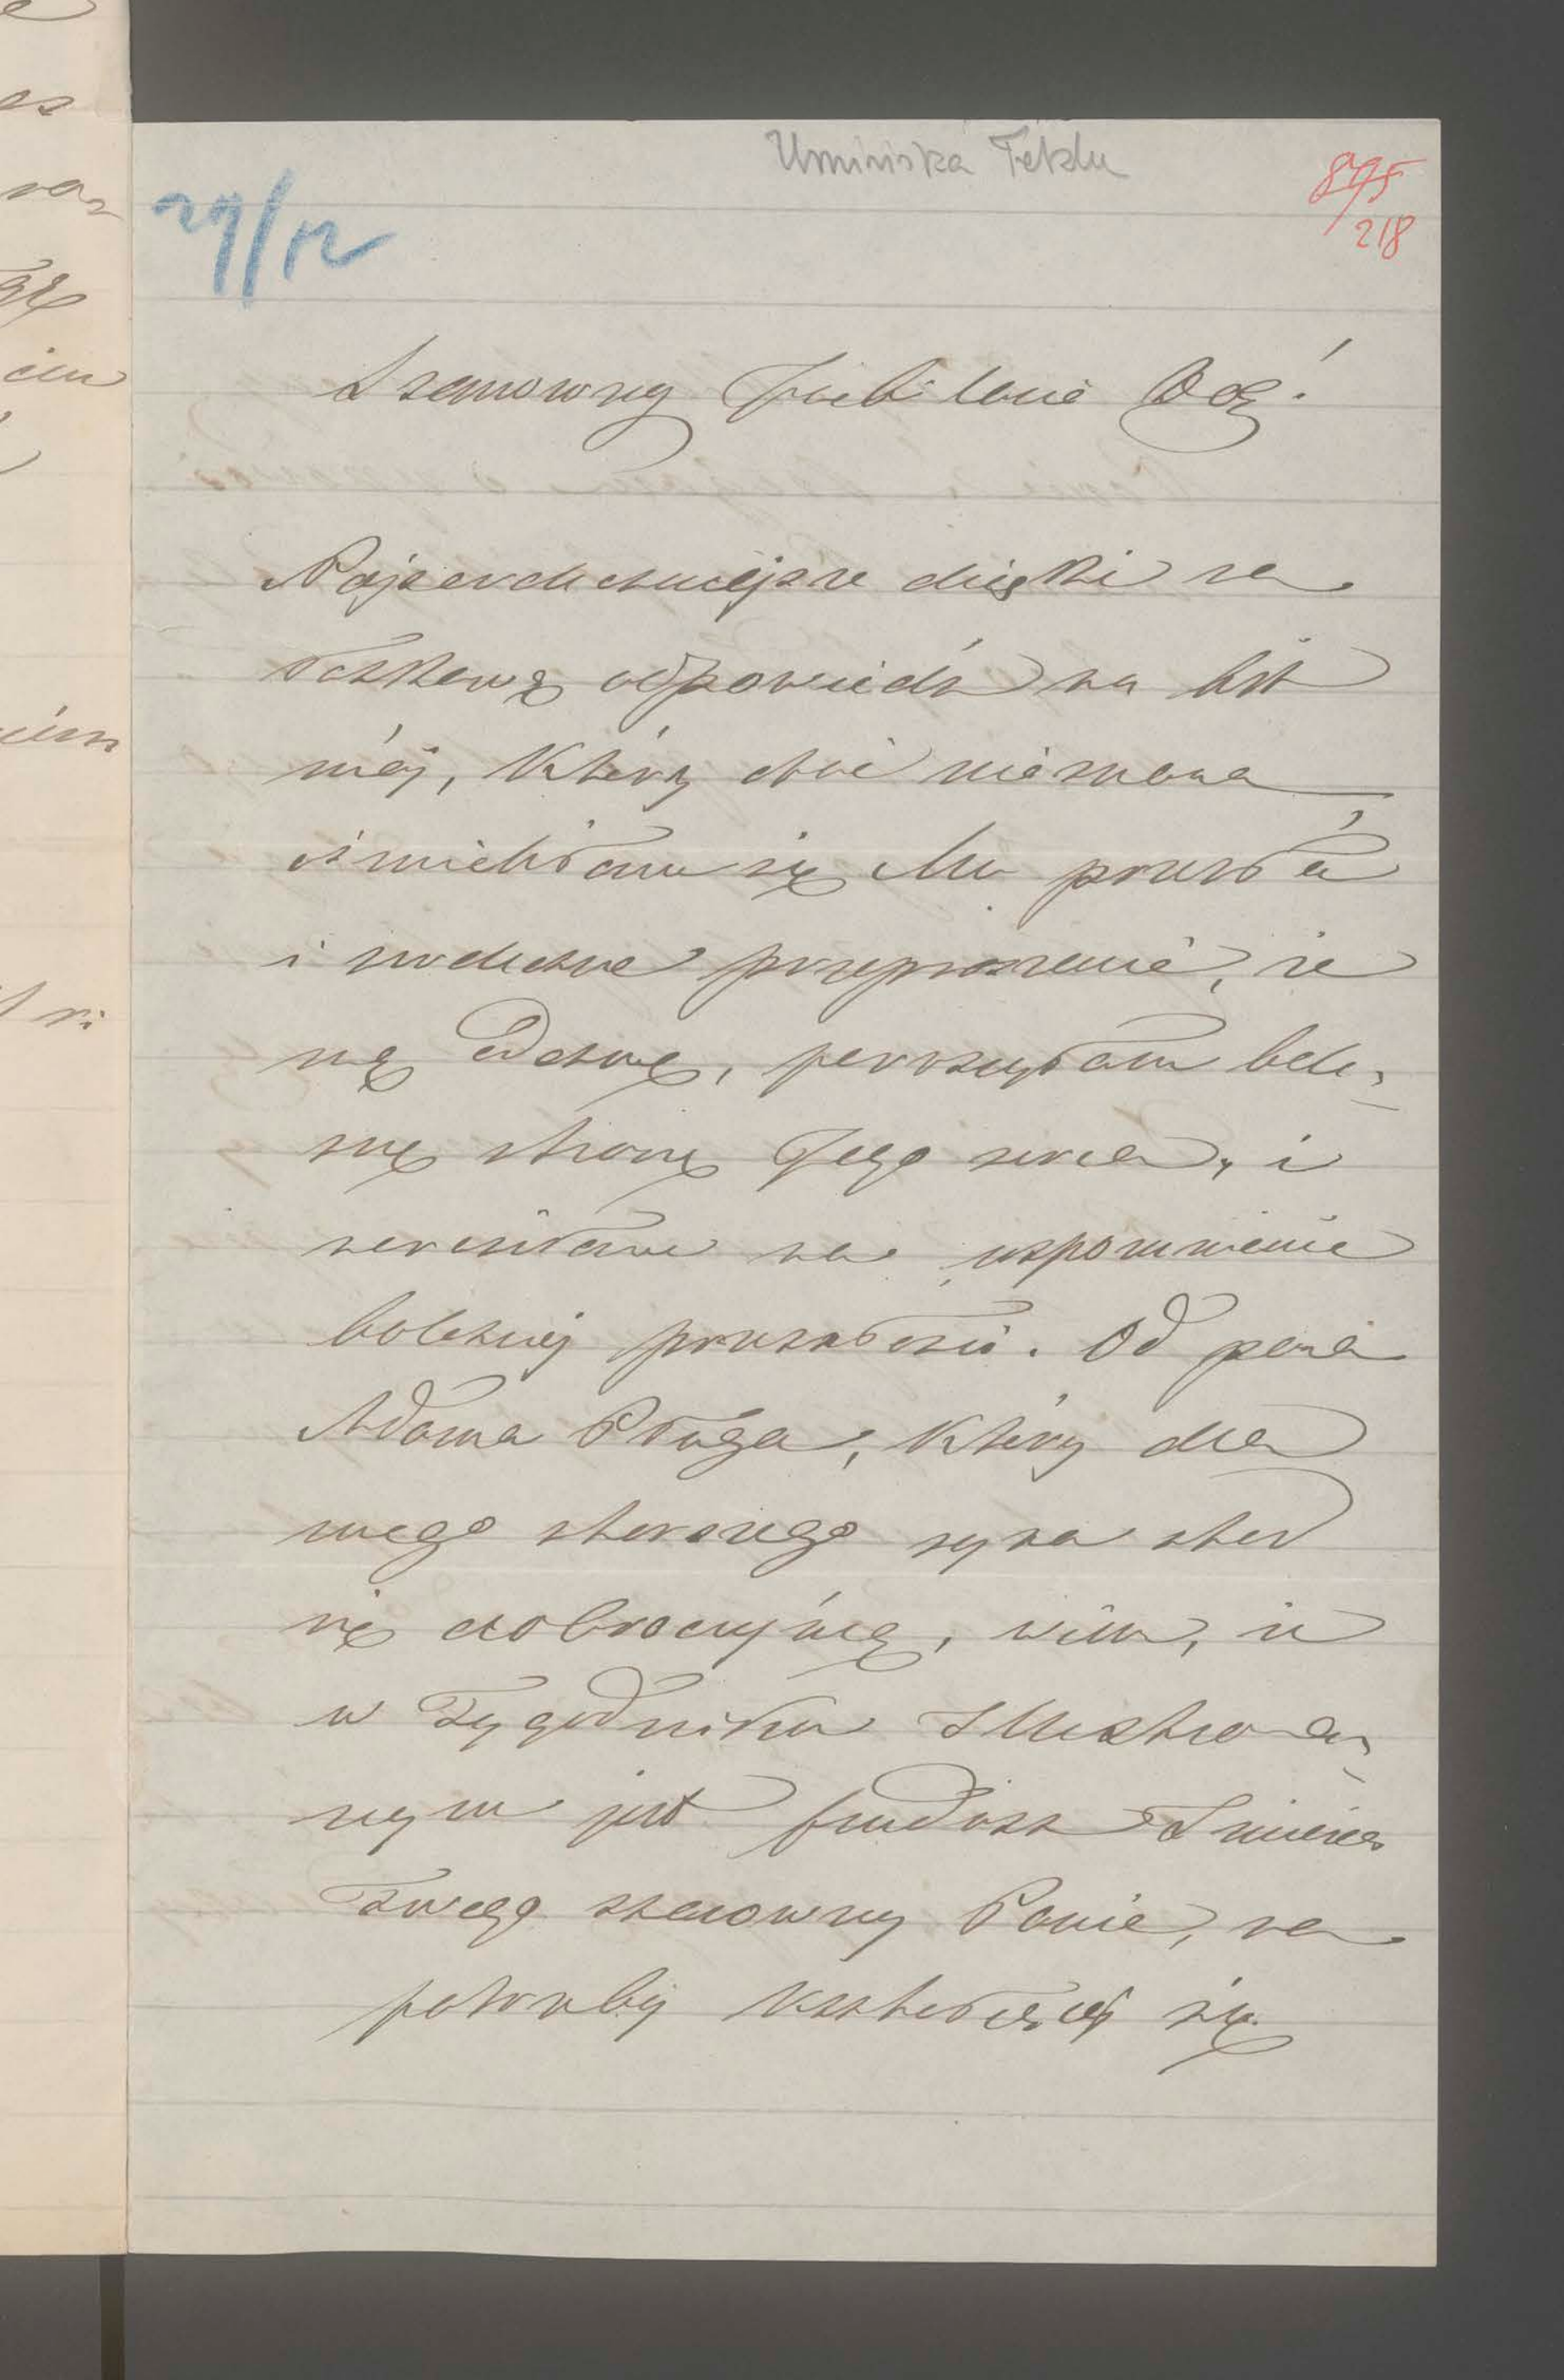 Umińska Tekla
29/12
895/218
Szanowny Jubilacie
Najserdeczniejsze dzięki za
łaskawą odpowiedź na list
mój, który choć nieznana
ośmieliłam się Mu przesłać
i serdeczne przeproszenie, że
nią poruszyłam bole¬
sną stronę Jego serca, i
wspomnienie
bolesnej przeszłości. Od pana
Adama Pługa, który dla
mego starszego syna stał
się dobroczyńcą, wiem, iż
w Tygodniku Illustrowa¬
nym jest fundusz Imienia
Twego szanowny Panie, na
potrzeby kształcącej się